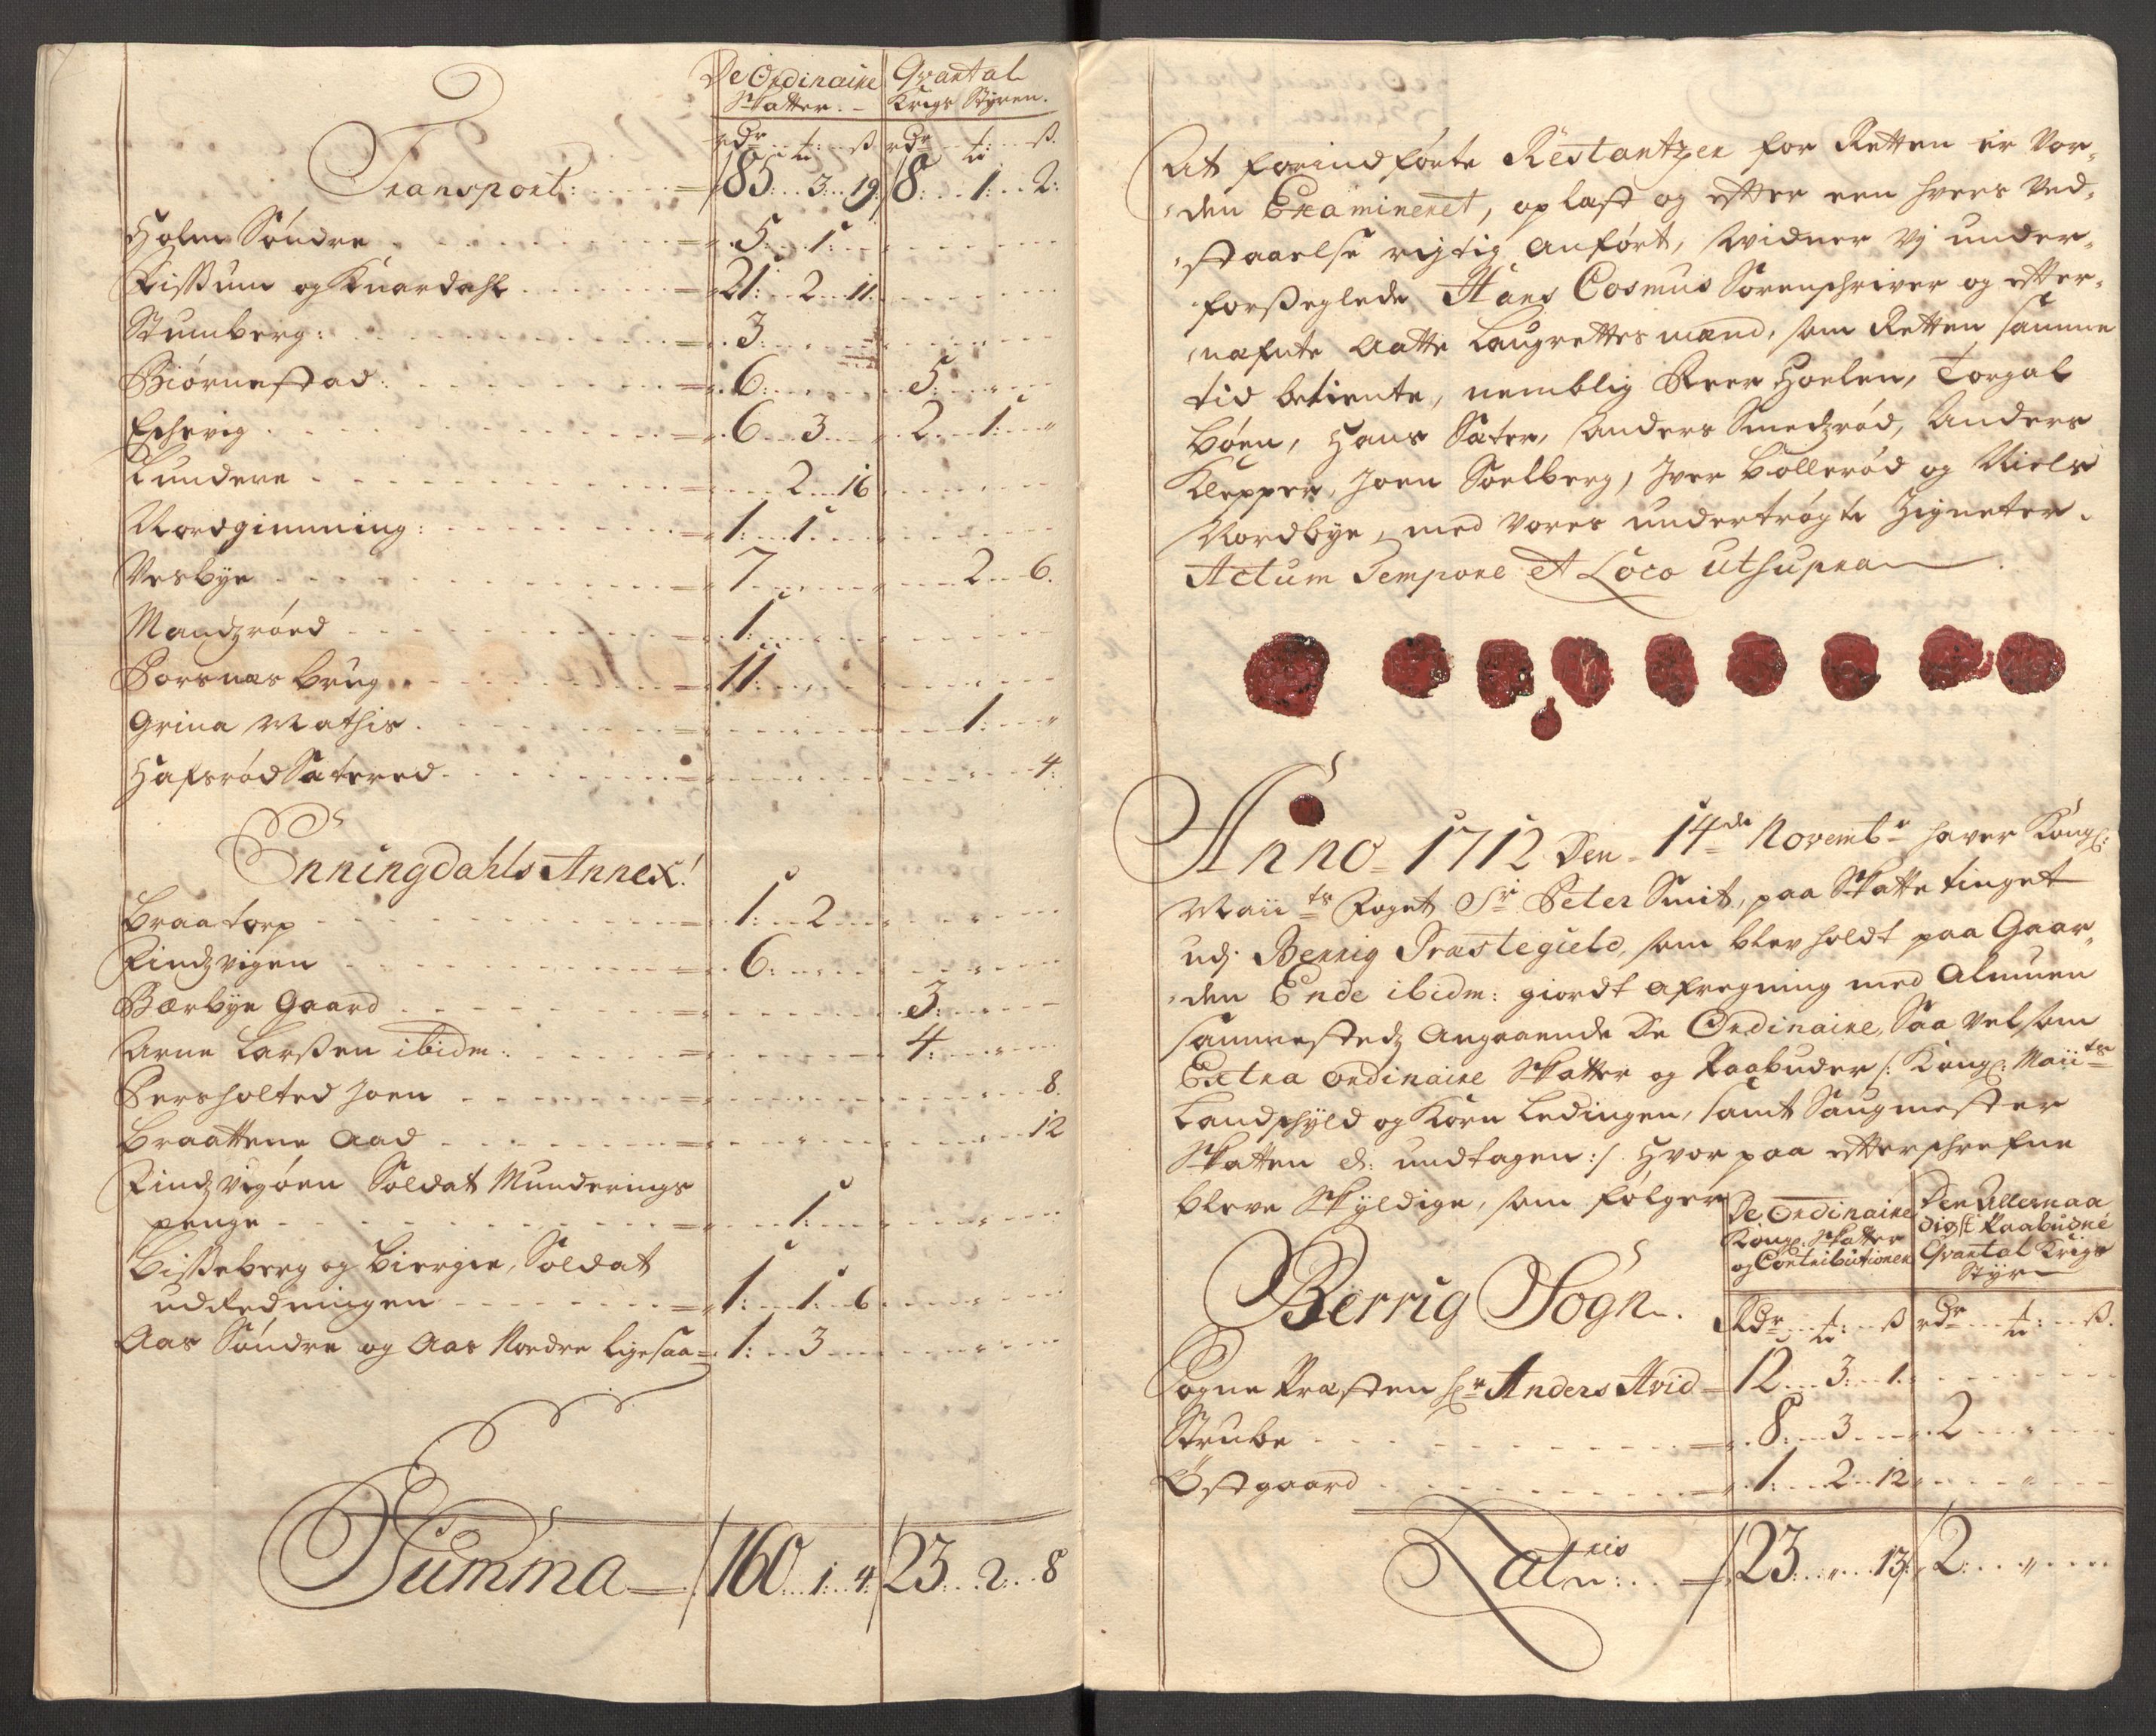 De Ordinaire Qvartal
Skatter. Krigs Styren.
rdr ß rdr ß
Transport: 85: 3: 19: 18: 1: 2:
Holm Søndre 5: 1:
Tistum og Knardahl 21: 2: 11:
Stumberg: 3:
Biørnestad: 6: 5:
Eschevig 6: 3 2: 1:
Lundene 2: 16
Nordgimming: 1: 1
Vesbye 7 2: 6.
Mandzrøed 1:
Porsnes brug 11:
Grina Mathis 1:
Hafsrød Sætered 4:
Enningdahls Annex:
Braatorp 1: 2
Findzvigen 6:
Bærbye Gaard 3:
Arne Larsen ibidm: 4:
Persholted Joen 8.
Braattene Aad 12
Findzvigøen Soldat Munderings
penge 1:
Bisseberg og Biergen, Soldat
udredningen 1: 1: 6
Aas Søndre og Aas Nordre ligesaa 1: 3
Summa 160: 1: 4 23: 2: 8
At forindførte Restantzer for Retten er vor-
den Examineret, oplæst og effter een hvers ved-
staaelse rigtig anført, Widner vj under-
forseglede Hans Cosmus Sorenschriver og effter-
nefnte Aatte Laugrettes mænd, som Retten samme
tid betiente, nemblig Peer Hoelen, Torgal
Bøen, Hans Sæter, Anders Smedzrød, Anders
Klepper, Joen Soelberg, Iver Bollerød og Niels
Nordbye, med vores undertrøgte Zigneter.
Actum Tempore Et Loco utsupra
Anno 1712 Den 14de Novembr haver Kongl:
Maiits Foget Sr Peter Smit, paa Skattetinget
udj Berrig Præstegield, som blev holdt paa Gaar-
den Ende ibidm: giordt afregning med Almuen
sammestedz Angaaende De Ordinaire, Saa velsom
Extra ordinaire Skatter og Paabuder /: Kongl: Maiits
Landschyld og Korn Ledingen, samt Saugmester
Skatten undtagen :/ Hvor paa effterschrefne
bleve Skyldige, som følger
De Ordinaire Den Allernaa
Kongl. Skatter digst Paabudne
og Contributioner Qvartal Krigs
Styr
Berrig Sogn.
Rdr ß rdr ß.
Sogne Præsten Hr Anders Hvid 12: 3: 1.
Strube 8: 3 2
Østgaard 1: 2: 12
Lateriis 23: " 13: 2: "